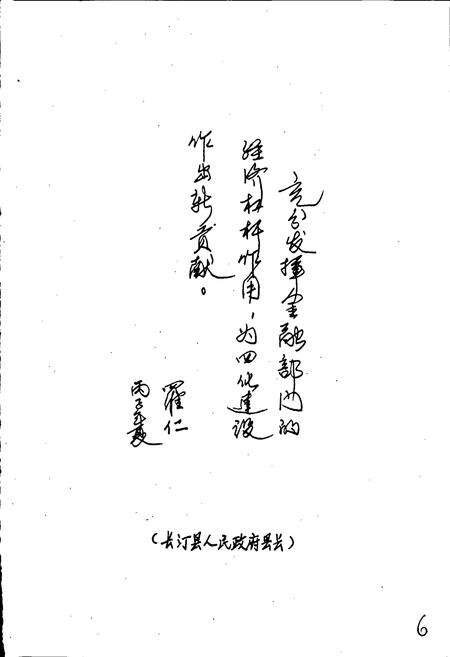 充分发挥金融部门的
经济杠杆作用，为四化建设
作出新贡献。
罗仁
丙子年夏
（长汀县人民政府县长）
6